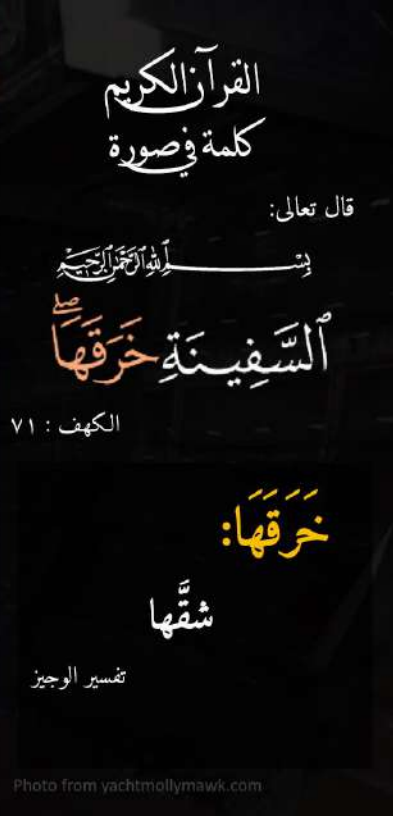 القرآن الكريم
كلمة في صورة
قال تعالى:
بِسْمِ اللَّهِ الرَّحْمَٰنِ الرَّحِيمِ
ٱلسَّفِينَةِ خَرَقَهَاۖ
الكهف : ٧١
خَرَقَهَا:
شقَّها
تفسير الوجيز
Photo from yachtmollymawk.com